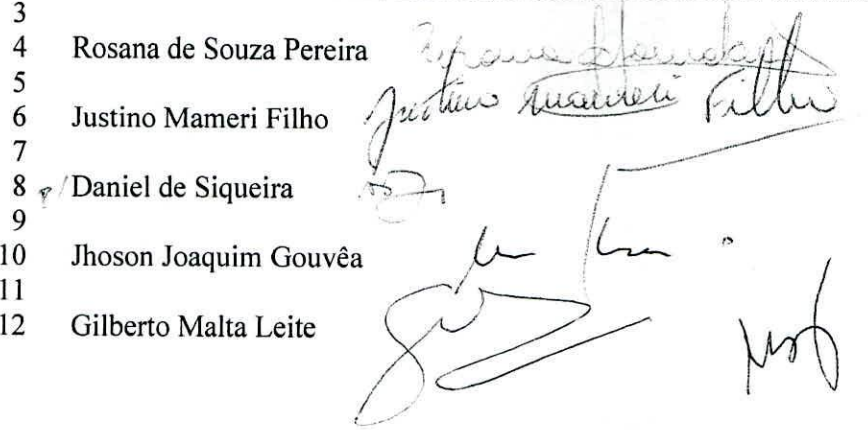 3
4 Rosana de Souza Pereira
5
6 Justino Mameri Filho Justino Mameri Filho
7
8 Daniel de Siqueira
9
10 Jhoson Joaquim Gouvêa
11
12 Gilberto Malta Leite